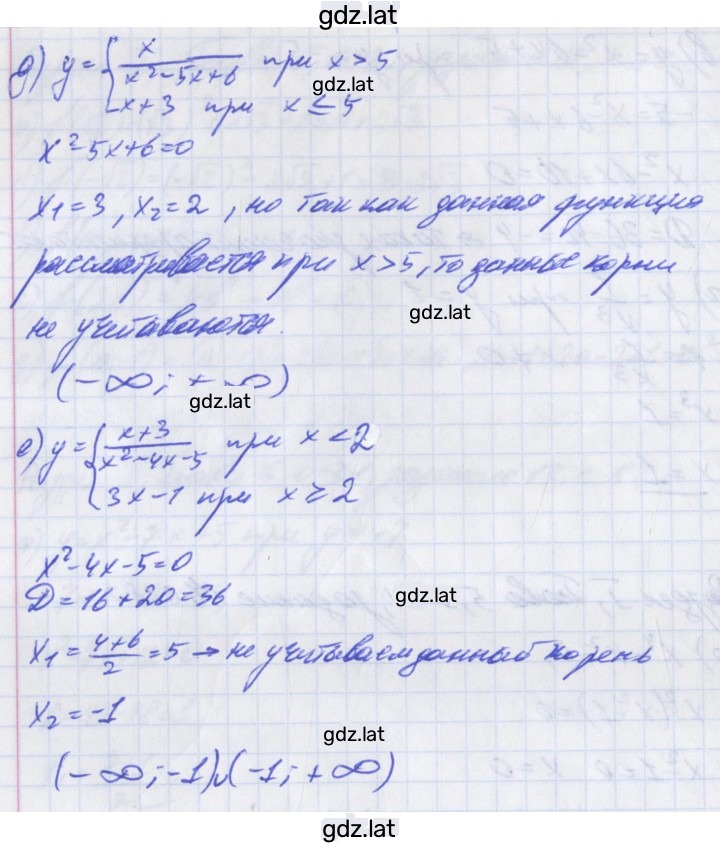 gdz.lat
д) y = { x / (x² - 5x + 6) при x > 5
gdz.lat
x + 3 при x ≤ 5
x² - 5x + 6 = 0
x₁ = 3, x₂ = 2, но так как данная функция
рассматривается при x > 5, то данные корни
gdz.lat
не учитываются.
(-∞; +∞)
gdz.lat
е) y = { (x + 3) / (x² - 4x - 5) при x < 2
3x - 1 при x ≥ 2
x² - 4x - 5 = 0
D = 16 + 20 = 36
gdz.lat
x₁ = (4 + 6) / 2 = 5 → не учитываем данный корень
x₂ = -1
gdz.lat
(-∞; -1)∪(-1; +∞)
gdz.lat